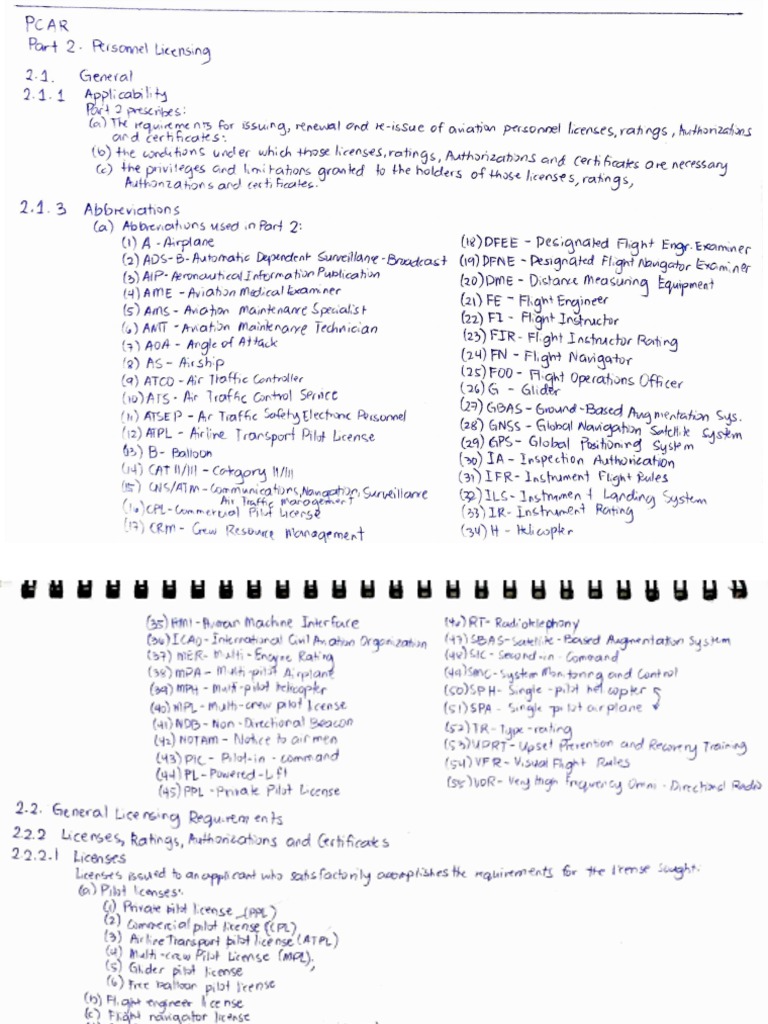 PCAR
Part 2. Personnel Licensing
2.1. General
2.1.1 Applicability
Part 2 prescribes:
(a) The requirements for issuing, renewal and re-issue of aviation personnel licenses, ratings, Authorizations
and certificates:
(b) the conditions under which those licenses, ratings, Authorizations and certificates are necessary
(c) the privileges and limitations granted to the holders of those licenses, ratings,
Authorizations and certificates.
2.1.3 Abbreviations
(a) Abbreviations used in Part 2:
(1) A - Airplane
(2) ADS-B- Automatic Dependent Surveillane - Broadcast
(3) AIP- Aeronautical Information Publication
(4) AME - Aviation Medical Examiner
(5) AMS - Aviation Maintenance Specialist
(6) AMT - Aviation Maintenance Technician
(7) AOA - Angle of Attack
(8) AS - Airship
(9) ATCO - Air Traffic Controller
(10) ATS - Air Traffic Control Service
(11) ATSEP - Air Traffic Safety Electronic Personnel
(12) ATPL - Airline Transport Pilot License
(13) B - Balloon
(14) CAT II/III - Category II/III
(15) CNS/ATM - Communications, Navigation, Surveillance
Air Traffic Management
(16) CPL - Commercial Pilot License
(17) CRM - Crew Resource Management
(18) DFEE - Designated Flight Engr. Examiner
(19) DFNE - Designated Flight Navigator Examiner
(20) DME - Distance Measuring Equipment
(21) FE - Flight Engineer
(22) FI - Flight Instructor
(23) FIR - Flight Instructor Rating
(24) FN - Flight Navigator
(25) FOO - Flight Operations Officer
(26) G - Glider
(27) GBAS - Ground-Based Augmentation Sys.
(28) GNSS - Global Navigation Satellite System
(29) GPS - Global Positioning System
(30) IA - Inspection Authorization
(31) IFR - Instrument Flight Rules
(32) ILS - Instrument Landing System
(33) IR - Instrument Rating
(34) H - Helicopter
(35) HMI - Human Machine Interface
(36) ICAO - International Civil Aviation Organization
(37) MER - Multi - Engine Rating
(38) MPA - Multi-pilot Airplane
(39) MPH - Multi-pilot helicopter
(40) MPL - Multi-crew pilot license
(41) NDB - Non - Directional Beacon
(42) NOTAM - Notice to air men
(43) PIC - Pilot-in - command
(44) PL - Powered - Lift
(45) PPL - Private Pilot License
(46) RT - Radiotelephony
(47) SBAS - Satellite - Based Augmentation System
(48) SIC - Second-in - Command
(49) SMC - System Monitoring and Control
(50) SPH - Single - pilot helicopter
(51) SPA - Single pilot airplane
(52) TR - Type-rating
(53) UPRT - Upset Prevention and Recovery Training
(54) VFR - Visual Flight Rules
(55) VOR - Very High Frequency Omni - Directional Radio
2.2. General Licensing Requirements
2.2.2 Licenses, Ratings, Authorizations and Certificates
2.2.2.1 Licenses
Licenses issued to an applicant who satisfactorily accomplishes the requirements for the license sought:
(a) Pilot licenses:
(1) Private pilot license (PPL)
(2) Commercial pilot license (CPL)
(3) Airline Transport pilot license (ATPL)
(4) Multi-crew Pilot License (MPL),
(5) Glider pilot license
(6) Free balloon pilot license
(b) Flight engineer license
(c) Flight navigator license